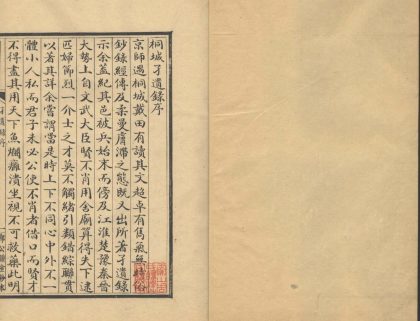 桐城孑遺錄序
京師遇桐城戴田有讀其文超卓有雋氣無時俗
鈔錄經傳及柔曼膚滯之態既又出所著孑遺錄
示余蓋紀其邑被兵始末而傍及江淮楚豫秦晉
大勢上自文武大臣賢不肖用舍廟算得失下逮
匹婦節烈一介士之才莫不觸緒引類錯綜聯貫
以著其詳余嘗謂當是時上下不同心中外不一
體小人私而君子未必公使不肖者借口而賢才
不得盡其用天下魚爛癰潰坐視不可救藥此明
孑遺錄序